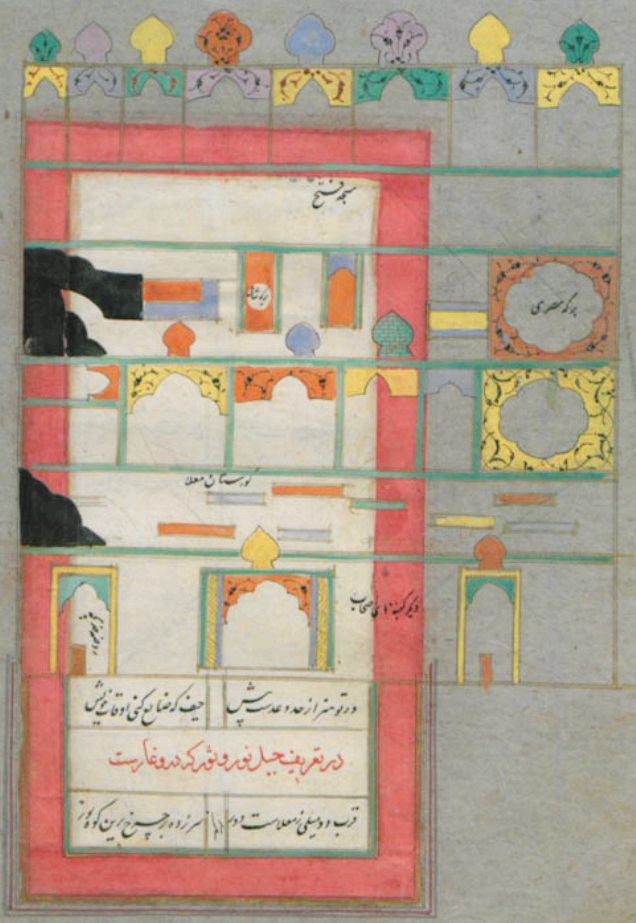 مسجد فتح
برکه شامی
برکه مصری
گورستان معلا
دیگر گنبدهای اصحاب
در تو هنر از حد و عدست پیش حیف که ضایع کنی اوقات خویش
در تعریف جبل نور و ثور که درو غارست
قرب دو میلی ز معلاست دور سر زده بر چرخ برین کوه نور